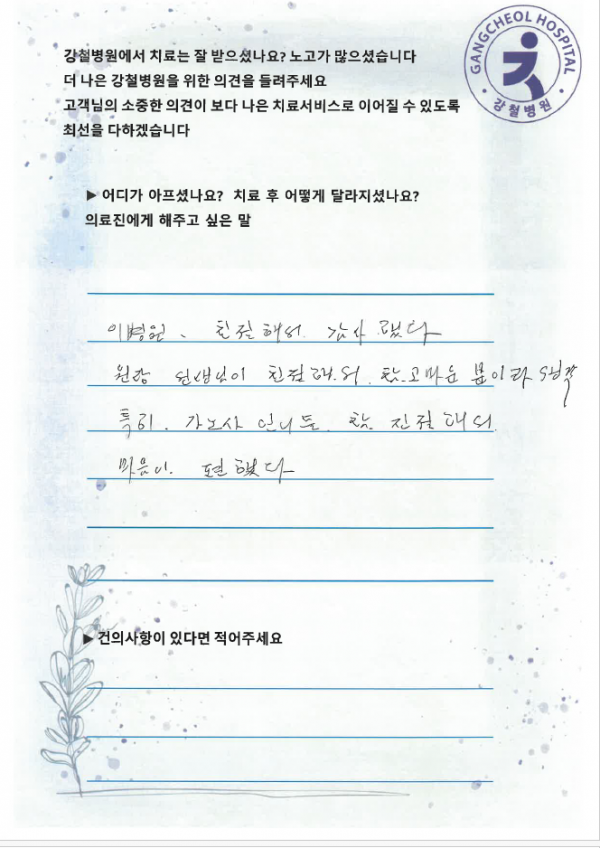 GANGCHEOL HOSPITAL
강철병원
강철병원에서 치료는 잘 받으셨나요? 노고가 많으셨습니다
더 나은 강철병원을 위한 의견을 들려주세요
고객님의 소중한 의견이 보다 나은 치료서비스로 이어질 수 있도록
최선을 다하겠습니다
▶ 어디가 아프셨나요? 치료 후 어떻게 달라지셨나요?
의료진에게 해주고 싶은 말
이병원. 친절해서 감사 했다
원장 선생님이 친절해서. 참.고마운 분이라 생각
특히. 간호사 언니들. 참. 친절해서
마음이. 편했다
▶ 건의사항이 있다면 적어주세요